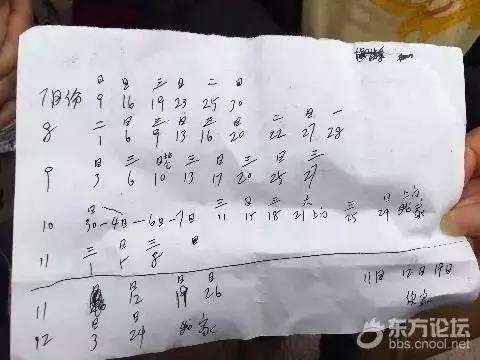 日 日 三 日 二 日
7月份 9 16 19 23 25 30
二 日 三 日 三 日 二 日 一
8 1 6 9 13 16 20 22 27 28
日 三 三 日 三
9 3 6 10 13 17 20 25 27
日 三 日 三 六 三 日 上午
10 30-4日-6日-7日 11 15 18 21 25 29
三 日 三 日
11 1 5 8
日 日 日
11 12 19 26 11日 12日 19日
日 日
12 3 24
东方论坛
bbs.cnool.net